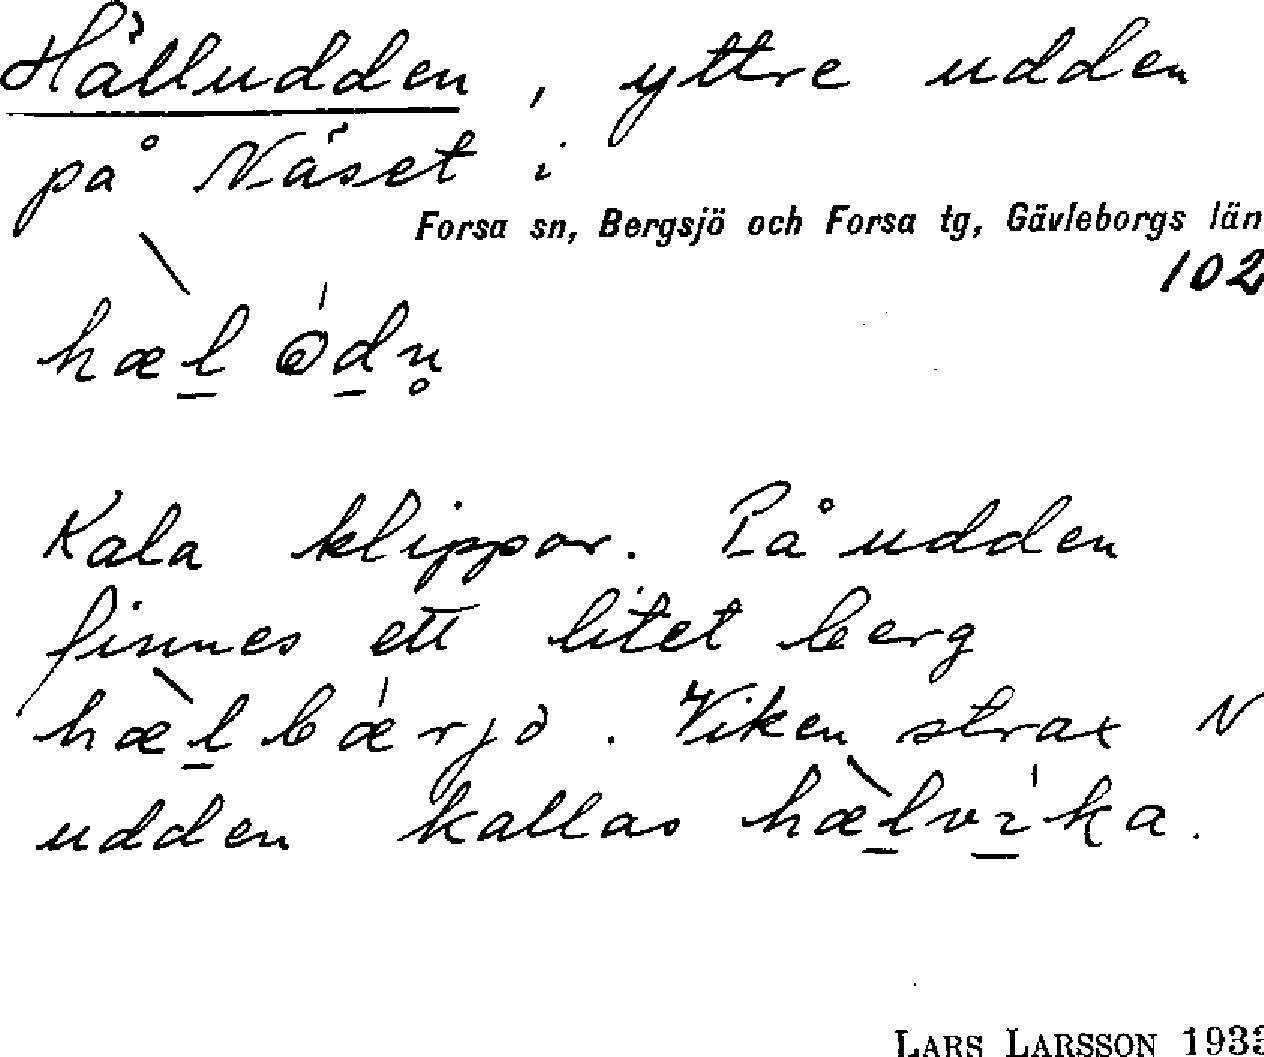 Hälludden, yttre udden
på Näset i
Forsa sn, Bergsjö och Forsa tg, Gävleborgs län
102
hæ̀l ódn̥
Kala klippor. På udden
finnes ett litet berg
hæ̀l bǽrjə. Viken strax N
udden kallas hæ̀lvíka.
LARS LARSSON 1933